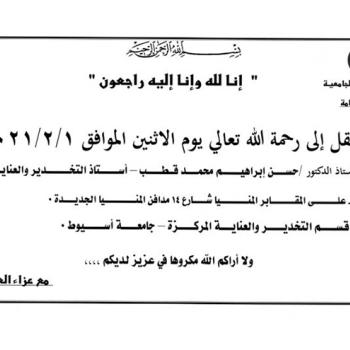 بسم الله الرحمن الرحيم
الجامعية
" إنا لله وإنا إليه راجعون "
إلى رحمة الله تعالي يوم الاثنين الموافق ٢٠٢١/٢/١
الدكتور /حسن إبراهيم محمد قطب – أستاذ التخدير والعناية
على المقابر المنيا شارع ١٤ مدافن المنيا الجديدة ٠
قسم التخدير والعناية المركزة – جامعة أسيوط
ولا أراكم الله مكروها في عزيز لديكم ,,,,
مع عزاء